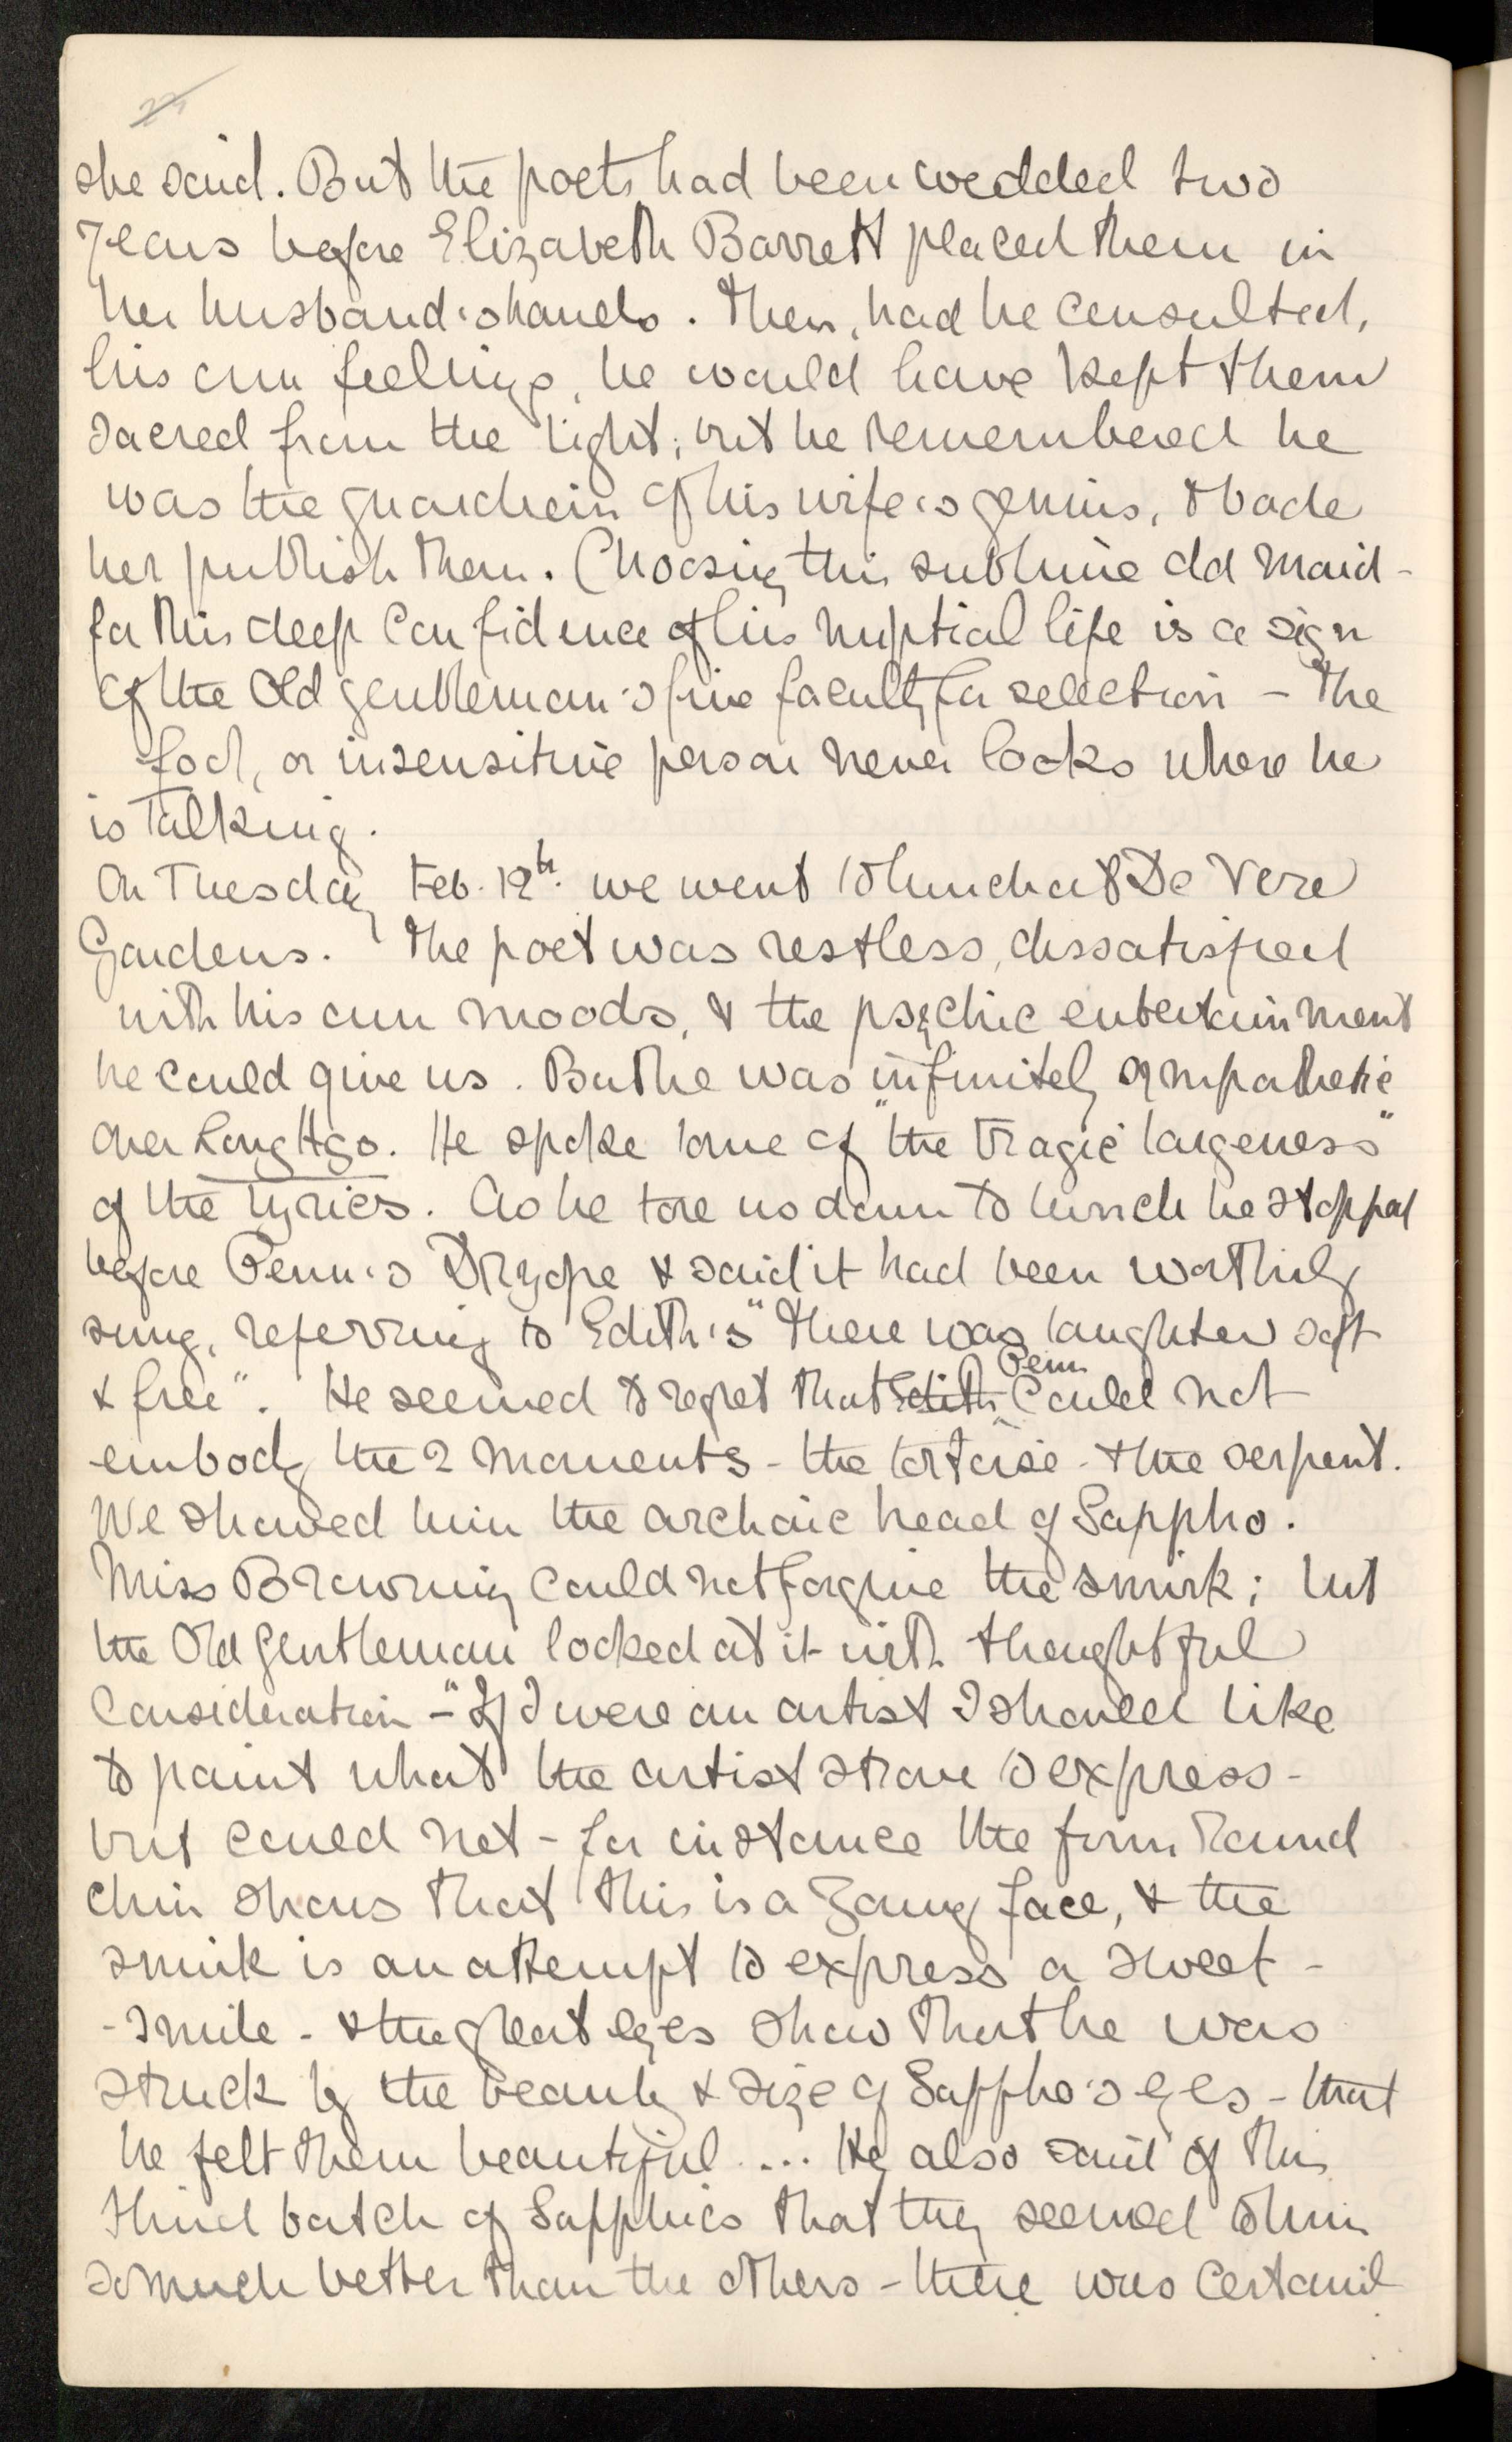 she said. But the poets had been wedded two
years before Elizabeth Barrett placed them in
her husband's hands. Then, had he consulted,
his own feelings, he would have kept them
sacred from the light; but he remembered he
was the guardein of his wife's genius, & bade
her publish them. Choosing this sublime old maid -
for this deep confidence of his nuptial life is a sign
of the Old gentleman's fine faculty for selection - The
fool, or insensitive person never looks where he
is talking.
On Tuesday Feb. 12th. we went to lunch at De Vere
Gardens. The poet was restless, dissatisfied
with his own moods, & the psychic entertainment
he could give us. But he was infinitely sympathetic
over Long Ago. He spoke to me of "the tragic largeness"
of the lyrics. As he tore us down to lunch he stopped
before Penn's Dryope & said it had been worthily
sung, referring to Edith's "There was laughter soft
& free". He seemed to regret that Edith Penn could not
embody the 2 moments - the tortoise - & the serpent.
We showed him the archaic head of Sappho.
Miss Browning could not forgive the smirk; but
the Old gentleman looked at it with thoughtful
consideration - "If I were an artist I should like
to paint what the artist strove to express -
but could not - for instance the firm round
chin shows that this is a young face, & the
smirk is an attempt to express a sweet -
- smile - & the great eyes show that he was
struck by the beauty & size of Sappho's eyes - that
he felt them beautiful .... He also said of this
third batch of Sapphics that they seemed to him
so much better than the others - there was certainl